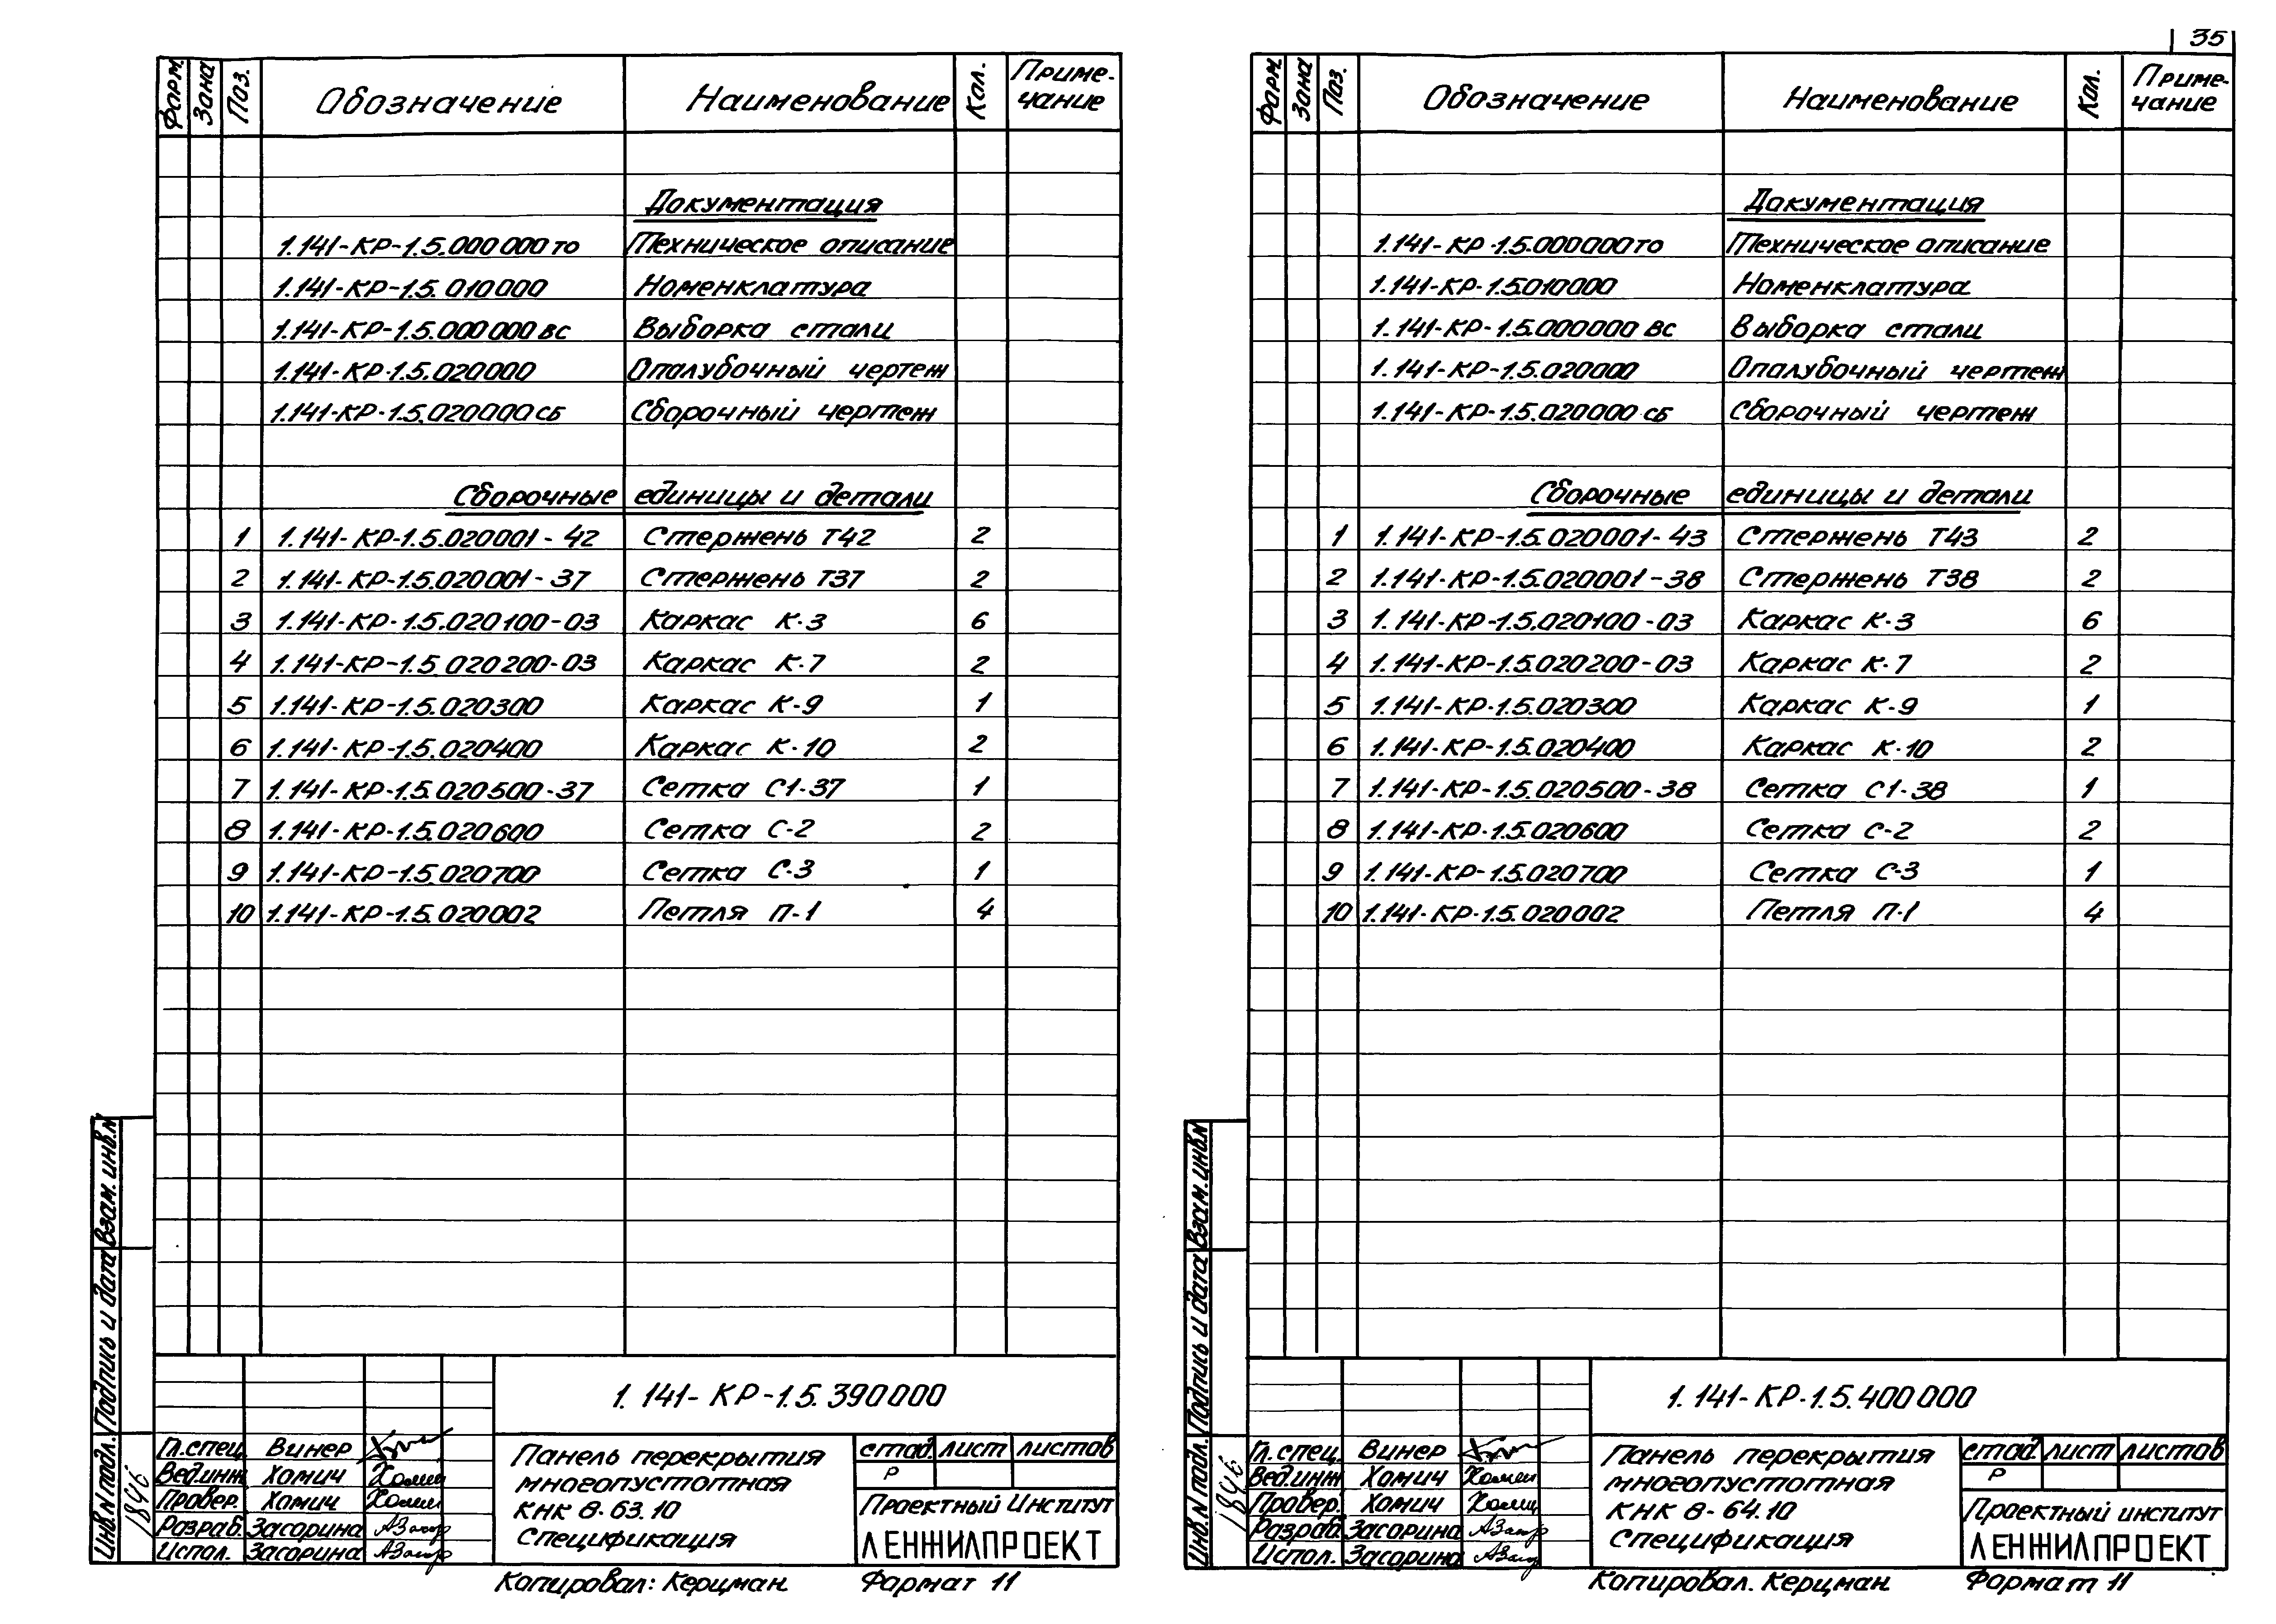 35
Форм. Зона Поз. Обозначение Наименование Кол. Приме-
чание
Документация
1.141-КР-1.5.000000то Техническое описание
1.141-КР-1.5.010000 Номенклатура
1.141-КР-1.5.000000вс Выборка стали
1.141-КР-1.5.020000 Опалубочный чертеж
1.141-КР-1.5.020000сб Сборочный чертеж
Сборочные единицы и детали
1 1.141-КР-1.5.020001-42 Стержень Т42 2
2 1.141-КР-1.5.020001-37 Стержень Т37 2
3 1.141-КР-1.5.020100-03 Каркас К-3 6
4 1.141-КР-1.5.020200-03 Каркас К-7 2
5 1.141-КР-1.5.020300 Каркас К-9 1
6 1.141-КР-1.5.020400 Каркас К-10 2
7 1.141-КР-1.5.020500-37 Сетка С1-37 1
8 1.141-КР-1.5.020600 Сетка С-2 2
9 1.141-КР-1.5.020700 Сетка С-3 1
10 1.141-КР-1.5.020002 Петля П-1 4
1.141-КР-1.5.390000
Гл.спец. Винер
Вед.инж Хомич
Провер. Хомич
Разраб. Засорина
Испол. Засорина
Панель перекрытия
многопустотная
КНК 8-63.10
Спецификация
стад. лист листов
Р
Проектный Институт
ЛЕНЖИЛПРОЕКТ
Инв.N подл. Подпись и дата Взам.инв.N
1846
Копировал: Керцман Формат 11
Форм. Зона Поз. Обозначение Наименование Кол. Приме-
чание
Документация
1.141-КР-1.5.000000то Техническое описание
1.141-КР-1.5.010000 Номенклатура
1.141-КР-1.5.000000вс Выборка стали
1.141-КР-1.5.020000 Опалубочный чертеж
1.141-КР-1.5.020000сб Сборочный чертеж
Сборочные единицы и детали
1 1.141-КР-1.5.020001-43 Стержень Т43 2
2 1.141-КР-1.5.020001-38 Стержень Т38 2
3 1.141-КР-1.5.020100-03 Каркас К-3 6
4 1.141-КР-1.5.020200-03 Каркас К-7 2
5 1.141-КР-1.5.020300 Каркас К-9 1
6 1.141-КР-1.5.020400 Каркас К-10 2
7 1.141-КР-1.5.020500-38 Сетка С1-38 1
8 1.141-КР-1.5.020600 Сетка С-2 2
9 1.141-КР-1.5.020700 Сетка С-3 1
10 1.141-КР-1.5.020002 Петля П-1 4
1.141-КР-1.5.400000
Гл.спец. Винер
Вед.инж Хомич
Провер. Хомич
Разраб. Засорина
Испол. Засорина
Панель перекрытия
многопустотная
КНК 8-64.10
Спецификация
стад. лист листов
Р
Проектный институт
ЛЕНЖИЛПРОЕКТ
Инв.N подл. Подпись и дата Взам.инв.N
1846
Копировал. Керцман Формат 11